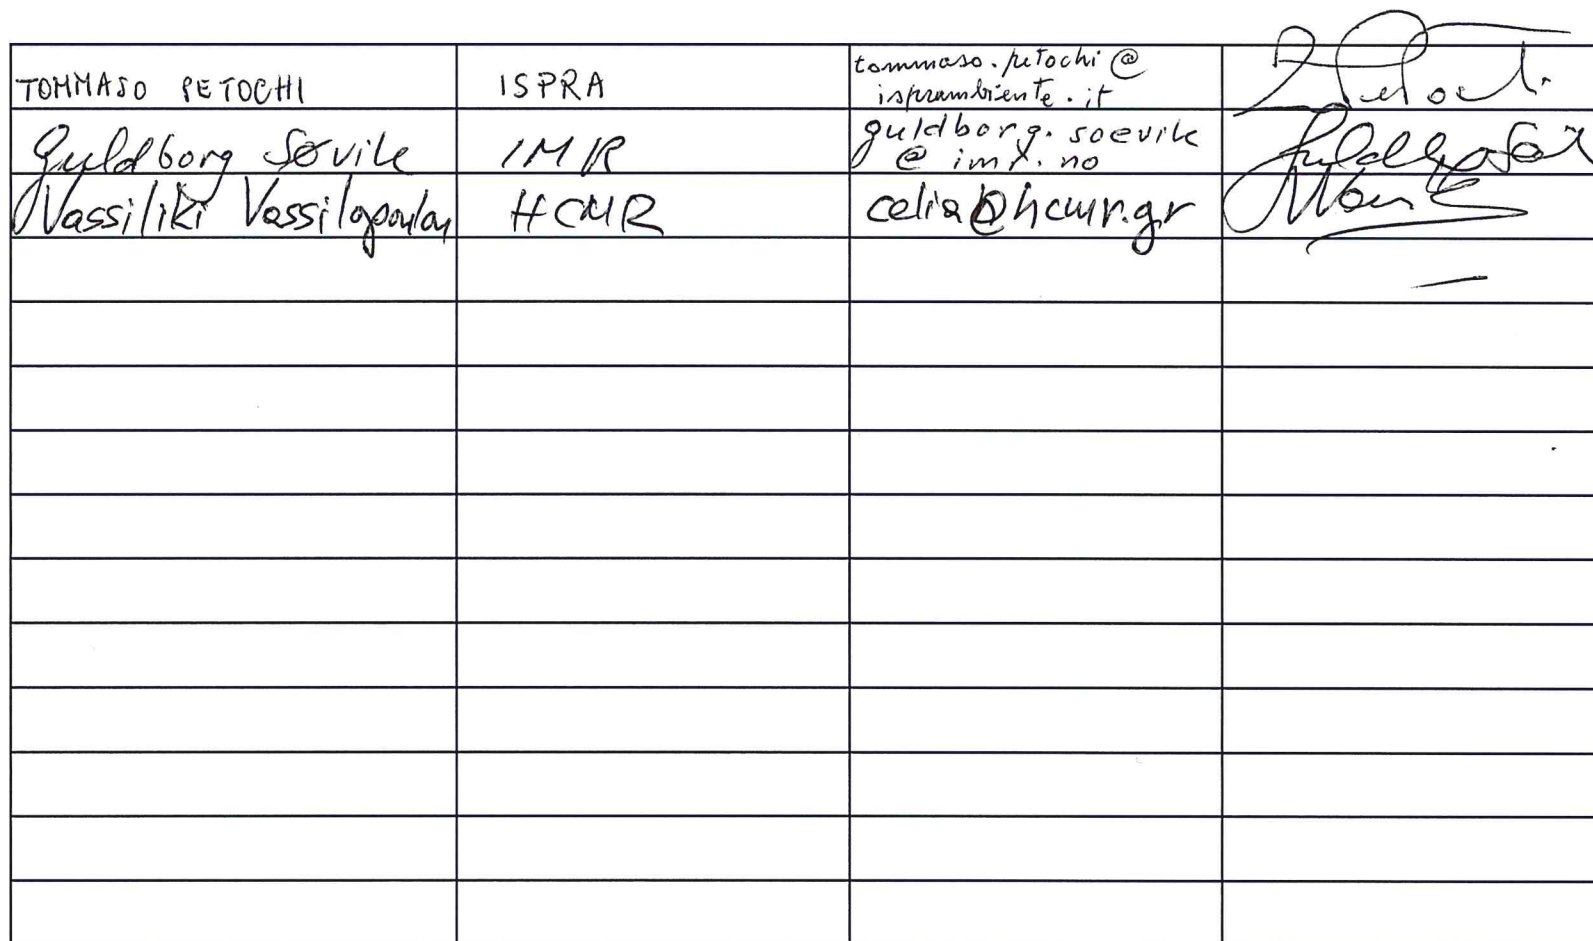 TOMMASO PETOCHI ISPRA tommaso.petochi@
isprambiente.it
Guldborg Søvik IMR guldborg.soevik
@ imr.no
Vassiliki Vassilopoulou HCMR celia@hcmr.gr